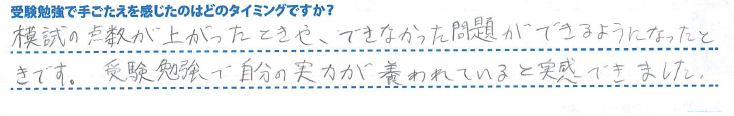 受験勉強で手ごたえを感じたのはどのタイミングですか？
模試の点数が上がったときや、できなかった問題ができるようになったと
きです。受験勉強で自分の実力が養われていると実感できました.